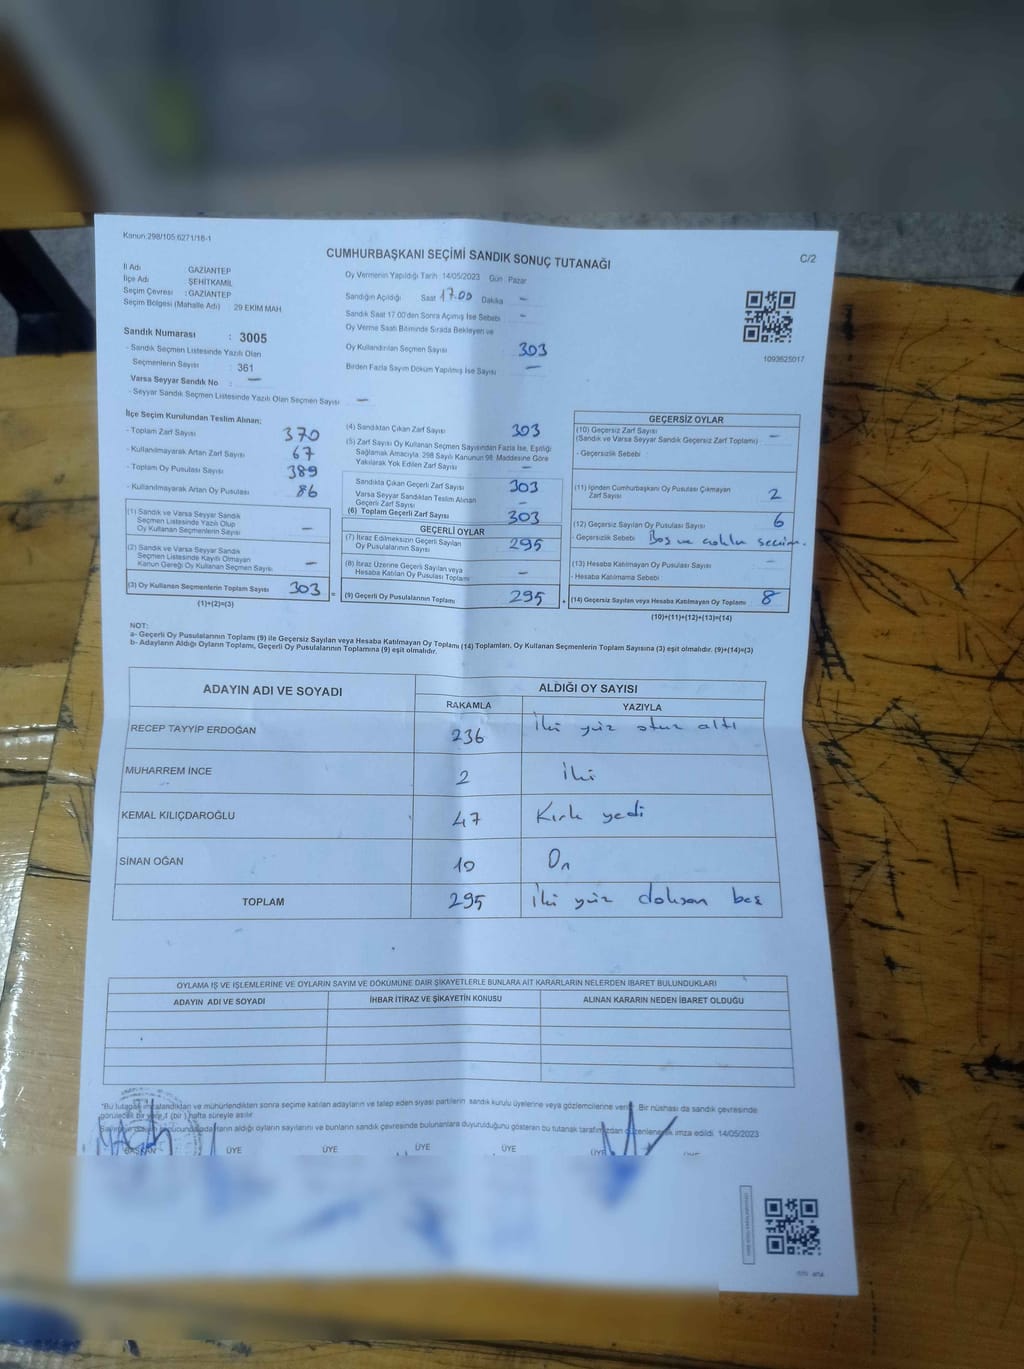 Kanun:298/105;6271/16-1
CUMHURBAŞKANI SEÇİMİ SANDIK SONUÇ TUTANAĞI
C/2
İl Adı GAZİANTEP
İlçe Adı ŞEHİTKAMİL
Seçim Çevresi : GAZİANTEP
Seçim Bölgesi (Mahalle Adı) : 29 EKİM MAH
Sandık Numarası : 3005
- Sandık Seçmen Listesinde Yazılı Olan
Seçmenlerin Sayısı : 361
Varsa Seyyar Sandık No : —
- Seyyar Sandık Seçmen Listesinde Yazılı Olan Seçmen Sayısı —
Oy Vermenin Yapıldığı Tarih 14/05/2023 Gün Pazar
Sandığın Açıldığı Saat 17.00 Dakika —
Sandık Saat 17.00'den Sonra Açılmış İse Sebebi —
Oy Verme Saati Bitiminde Sırada Bekleyen ve
Oy Kullandırılan Seçmen Sayısı 303
Birden Fazla Sayım Döküm Yapılmış İse Sayısı —
1093625017
İlçe Seçim Kurulundan Teslim Alınan;
- Toplam Zarf Sayısı 370
- Kullanılmayarak Artan Zarf Sayısı 67
- Toplam Oy Pusulası Sayısı 389
- Kullanılmayarak Artan Oy Pusulası 86
(1) Sandık ve Varsa Seyyar Sandık
Seçmen Listesinde Yazılı Olup
Oy Kullanan Seçmenlerin Sayısı —
(2) Sandık ve Varsa Seyyar Sandık
Seçmen Listesinde Kayıtlı Olmayan
Kanun Gereği Oy Kullanan Seçmen Sayısı —
(3) Oy Kullanan Seçmenlerin Toplam Sayısı 303 =
(1)+(2)=(3)
(4) Sandıktan Çıkan Zarf Sayısı 303
(5) Zarf Sayısı Oy Kullanan Seçmen Sayısından Fazla İse, Eşitliği
Sağlamak Amacıyla, 298 Sayılı Kanunun 98. Maddesine Göre
Yakılarak Yok Edilen Zarf Sayısı —
Sandıkta Çıkan Geçerli Zarf Sayısı 303
Varsa Seyyar Sandıktan Teslim Alınan
Geçerli Zarf Sayısı —
(6) Toplam Geçerli Zarf Sayısı 303
GEÇERLİ OYLAR
(7) İtiraz Edilmeksizin Geçerli Sayılan
Oy Pusulalarının Sayısı 295
(8) İtiraz Üzerine Geçerli Sayılan veya
Hesaba Katılan Oy Pusulası Toplamı —
(9) Geçerli Oy Pusulalarının Toplamı 295 +
GEÇERSİZ OYLAR
(10) Geçersiz Zarf Sayısı
(Sandık ve Varsa Seyyar Sandık Geçersiz Zarf Toplamı) —
- Geçersizlik Sebebi
(11) İçinden Cumhurbaşkanı Oy Pusulası Çıkmayan
Zarf Sayısı 2
(12) Geçersiz Sayılan Oy Pusulası Sayısı 6
Geçersizlik Sebebi Boş ve çoklu seçim.
(13) Hesaba Katılmayan Oy Pusulası Sayısı —
- Hesaba Katılmama Sebebi
(14) Geçersiz Sayılan veya Hesaba Katılmayan Oy Toplamı 8
(10)+(11)+(12)+(13)=(14)
NOT:
a- Geçerli Oy Pusulalarının Toplamı (9) ile Geçersiz Sayılan veya Hesaba Katılmayan Oy Toplamı (14) Toplamları, Oy Kullanan Seçmenlerin Toplam Sayısına (3) eşit olmalıdır. (9)+(14)=(3)
b- Adayların Aldığı Oyların Toplamı, Geçerli Oy Pusulalarının Toplamına (9) eşit olmalıdır.
ADAYIN ADI VE SOYADI ALDIĞI OY SAYISI
RAKAMLA YAZIYLA
RECEP TAYYİP ERDOĞAN 236 İki yüz otuz altı
MUHARREM İNCE 2 İki
KEMAL KILIÇDAROĞLU 47 Kırk yedi
SİNAN OĞAN 10 On
TOPLAM 295 İki yüz doksan beş
OYLAMA İŞ VE İŞLEMLERİNE VE OYLARIN SAYIM VE DÖKÜMÜNE DAİR ŞİKAYETLERLE BUNLARA AİT KARARLARIN NELERDEN İBARET BULUNDUKLARI
ADAYIN ADI VE SOYADI İHBAR İTİRAZ VE ŞİKAYETİN KONUSU ALINAN KARARIN NEDEN İBARET OLDUĞU
"Bu tutanak imzalandıktan ve mühürlendikten sonra seçime katılan adayların ve talep eden siyasi partilerin sandık kurulu üyelerine veya gözlemcilerine verilir. Bir nüshası da sandık çevresinde
görülecek bir yere 1 (bir) hafta süreyle asılır.
aldığı oyların sayılarını ve bunların sandık çevresinde bulunanlara duyurulduğunu gösteren bu tutanak tarafımızdan düzenlenerek imza edildi. 14/05/2023
BAŞKAN ÜYE ÜYE ÜYE ÜYE ÜYE